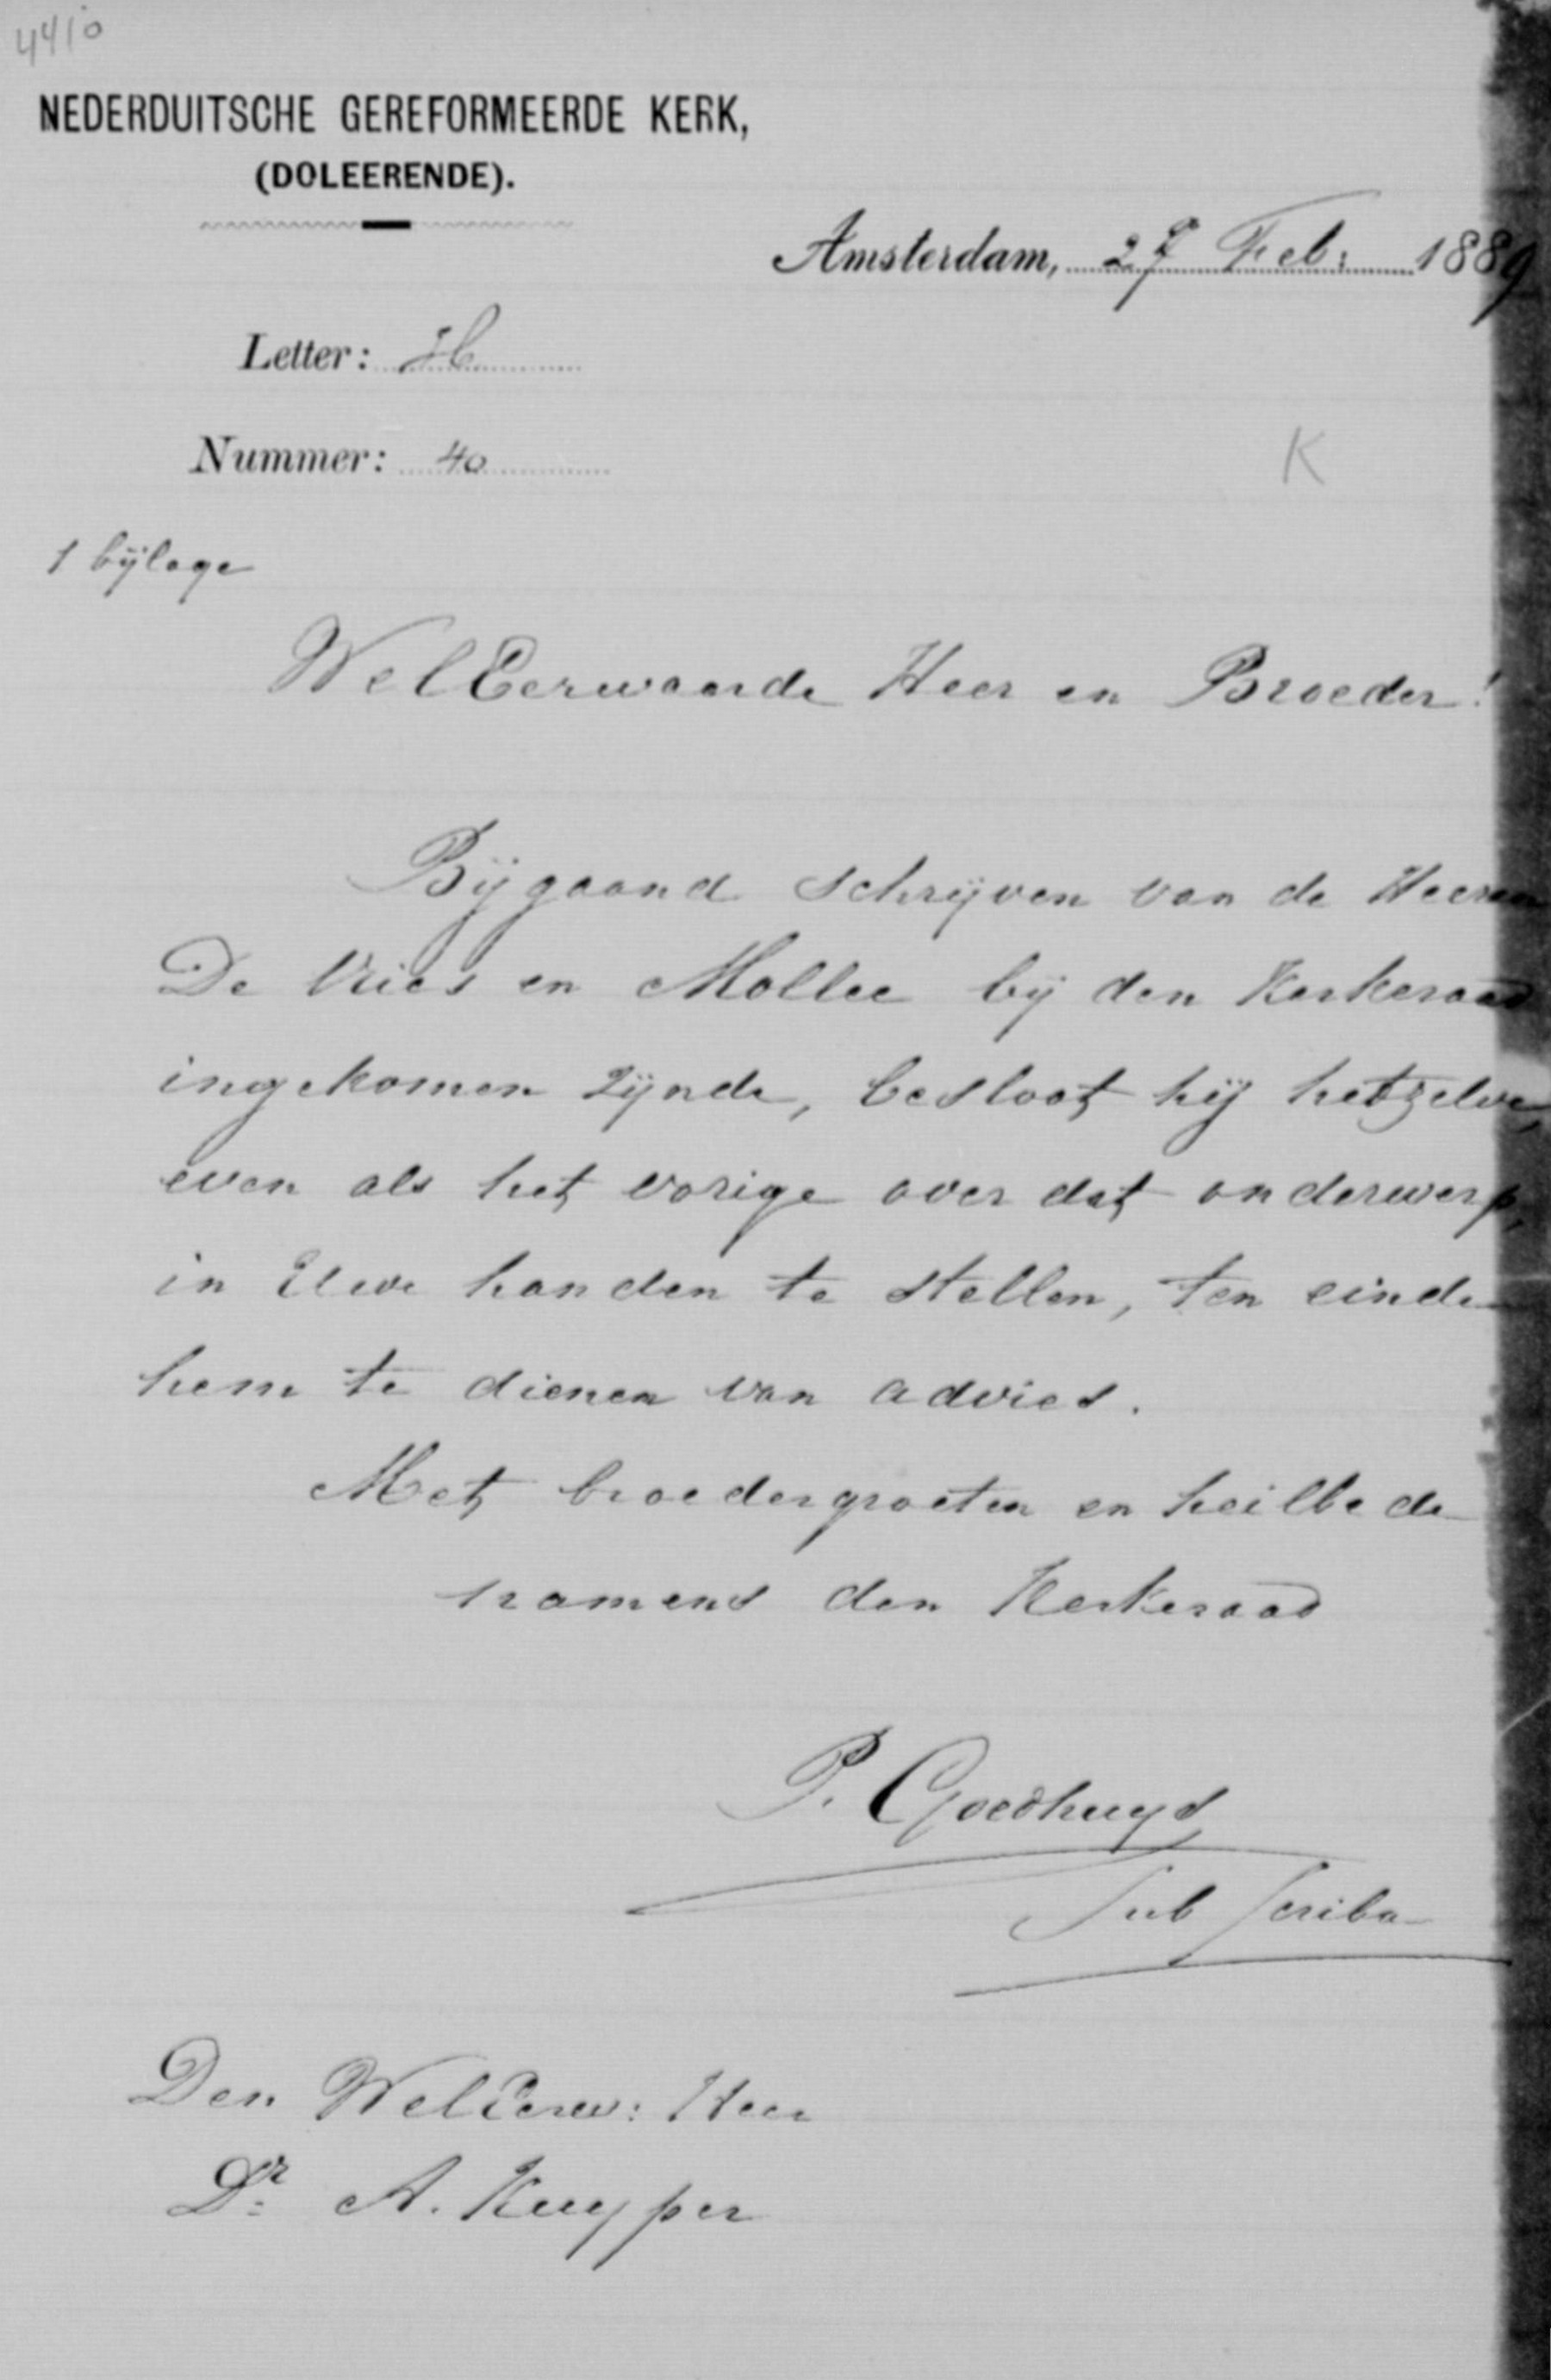 4410
NEDERDUITSCHE GEREFORMEERDE KERK,
(DOLEERENDE).
Amsterdam, 27 Feb: 1889
Letter: H
Nummer: 40
K
1 bijlage
WelEerwaarde Heer en Broeder!
Bijgaand schrijven van de Heeren
De Vries en Mollee bij den Kerkeraad
ingekomen zijnde, besloot hij hetzelve,
even als het vorige over dat onderwerp,
in Uwe handen te stellen, ten einde
hem te dienen van advies.
Met broedergroeten en heilbede
namens den Kerkeraad
P. Goedhuys
Sub Scriba
Den WelEerw: Heer
Dr A. Kuyper